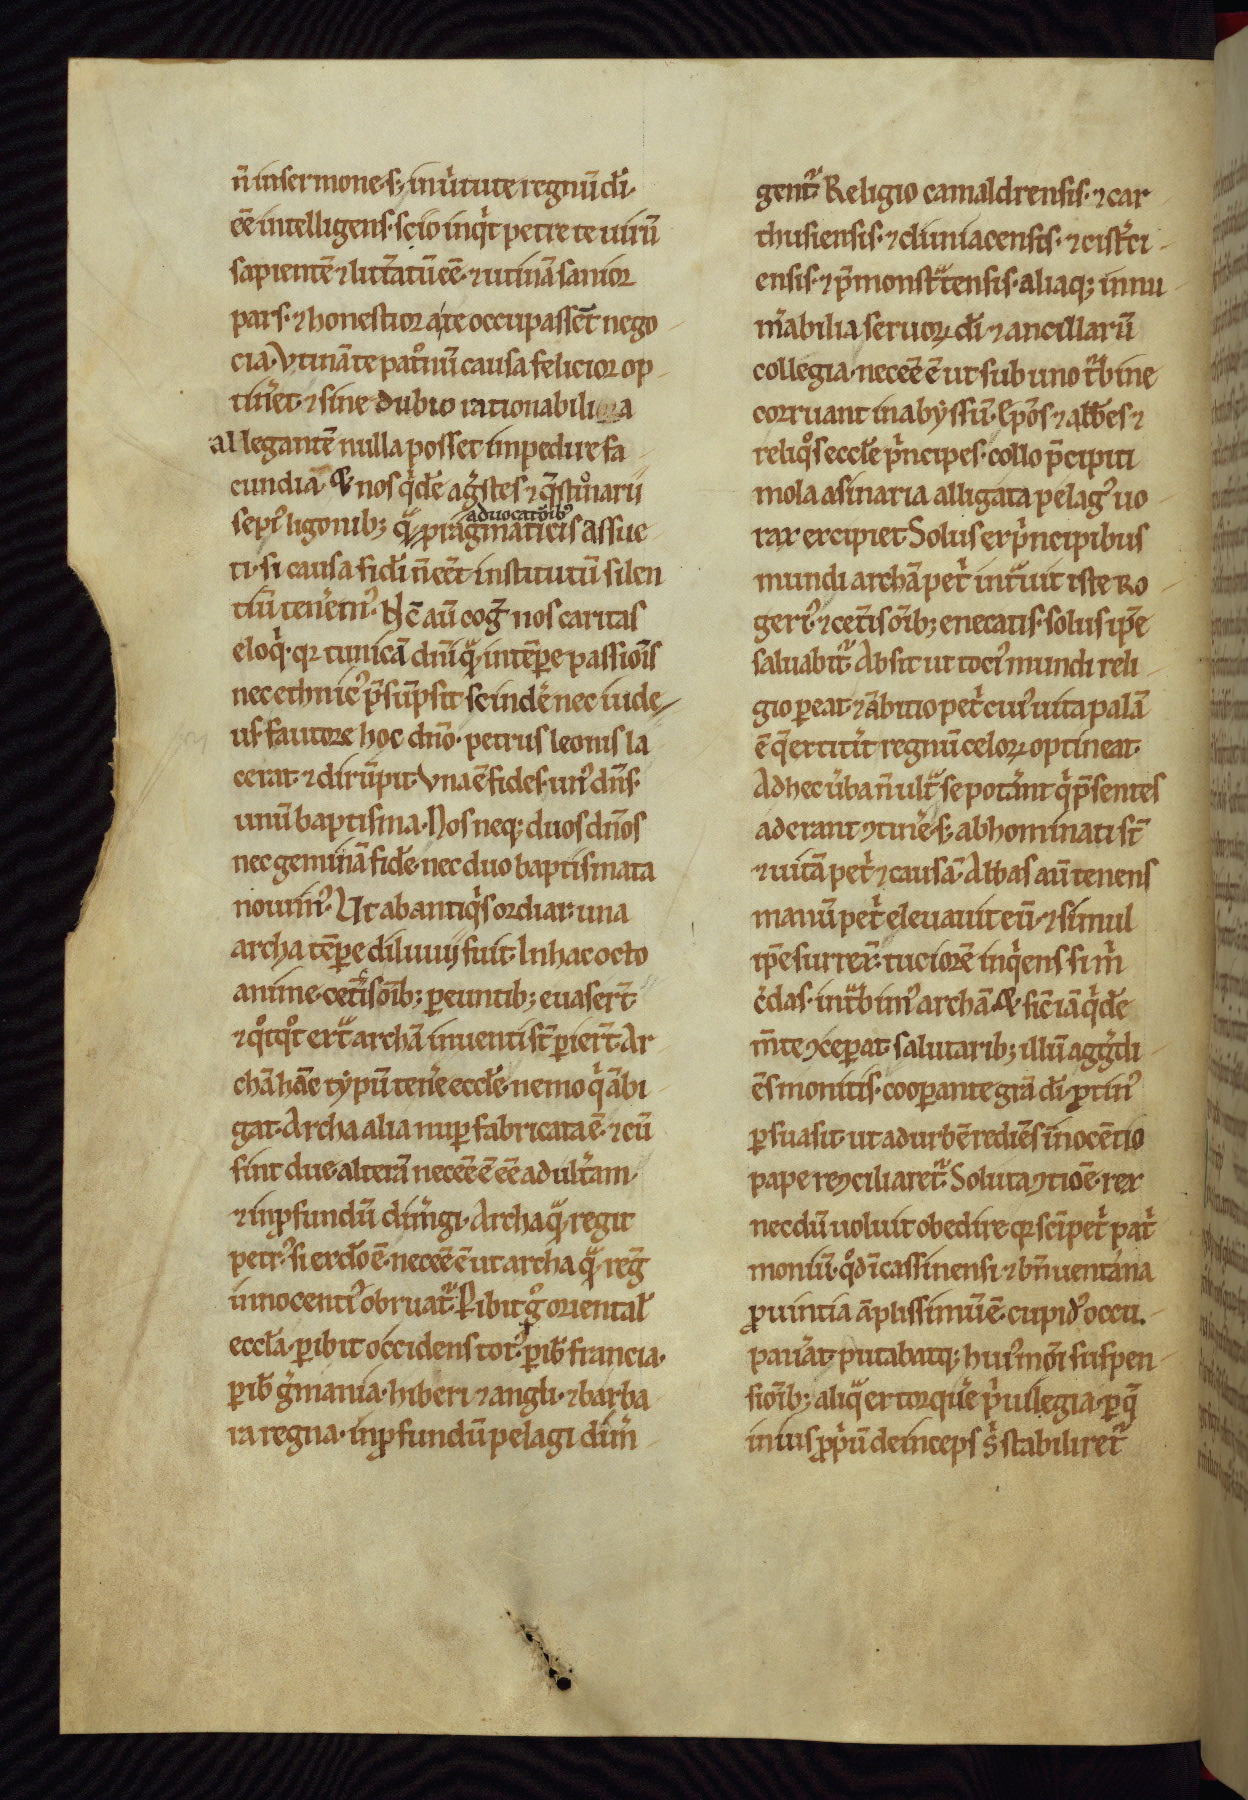 n̄ in sermone· s; in u᷑tute regnū dī·
eē intelligens· scio inqͥt petre te uirū
sapientē ⁊ litt᷑atū eē· ⁊ utinā sanior
pars· ⁊ honestior a te occupassēt nego
cia· Vtinā te patͦnū causa felicior op
tin᷑et· ⁊ sine dubio rationabiliora
allegantē nulla posset impedire fa
cundia· & nos qͥdē ag᷑stes ⁊
sepiꝰ ligonib; qͣ pragmaticis assue
aduocatoīibꝰ
ti· si causa fidī n̄ eēt institutū silen
tiū tenerem᷒· Nc̄ aū cog᷑ nos caritas
eloqͥ· qꝛ tunicā dn̄i qͣ̄ intēpe passiōis
nec ethnicꝰ p̄sūpsit scinde᷑ nec iude
us· fautore hoc dn̄o· petrus leonis la
cerat· ⁊ dirūpit· Vna ē fides· unꝰ dn̄s·
unū baptisma· Nos neq; duos dn̄os
nec geminā fidē· nec duo baptismata
nouimꝰ· Ut ab antiqͥs ordiar· una
archa tēpe diluuij fuit· In hac octo
anime· cet᷑is oīb; ꝑeuntib; euaser̄t·
⁊ qͦtqͦt ext̄ archā inuenti sт̄ ꝑier̄t· Ar
chā hāc typū tene᷑ eccl̄e· nemo qͥ ābi
gat· Archa alia nuꝑ fabricata ē· ⁊ cū
sint due· alterā neceē ē eē adult᷑am·
⁊ in ꝓfundū dim᷑gi· Archa qͣ̄ regit
petrꝰ· si ex dō ē· neceē ē ut archa qͣ̄ reḡ
innocentiꝰ obruat᷑· Pibit gͦ oriental̄
eccl̄a· ꝑibit occidens totꝰ· ꝑib᷑ francia·
ꝑib᷑ g᷑mania· hiberi ⁊ angli· ⁊ barba
ra regna· in ꝓfundū pelagi dim᷑
gent᷑· Religio camaldrensis· ⁊ car
thusiensis· ⁊ cluniacensis· ⁊ cist᷑ci
ensis· ⁊ p̄monstͣtensis· aliaq; innu
m᷑abilia seruoꝝ dī ⁊ ancillarū
collegia· neceē ē ut sub uno t᷑bine
corruant in abyssū· Ep̄os ⁊ abb̄es ⁊
reliqͦs eccl̄e pͥncipes· collo p̄cipiti
mola asinaria alligata pelagꝰ uo
rax excipiet· Solus ex pͥncipibus
mundi archā petͥ intͣuit iste Ro
gerꝰ· ⁊ cet᷑is oīb; enecatis· solus ip̄e
saluabit᷑· Absit ut tociꝰ mundi reli
gio ꝑeat· ⁊ ābitio petͥ cuiꝰ uita palā
ē qͣ̄ extit᷑it regnū celoꝝ optineat·
Ad hec u᷑ba n̄ ultͣ se pot᷑ant qͥ p̄sentes
aderant ꝯtine᷑· s; abhominati sт̄
⁊ uitā petͥ ⁊ causā· Abbas aū tenens
manū petͥ eleuauit eū· ⁊ simul
ip̄e surrex᷑· tuciorē inqͥens si m̄
c᷑das· int᷑bimꝰ archā· & sic̄ iā qͥdē
m̄te ꝯceꝑat· salutarib; illū aggͬdi
ēs monitis· cooꝑante gr̄a dī· ꝓtinꝰ
ꝑsuasit· ut ad urbē rediēs inocētio
pape reꝯciliaret᷑· Soluta ꝯtiōe· rex
necdū uoluit obedire qꝛ sc̄i petͥ patͥ
moniū· qͦd ī cassinensi ⁊ bn̄uentana
ꝓuintia āplissimū ē· cupidꝰ occu
pau᷑at· putabatq; huiꝰ mōi suspen
siōib; aliqͣ extorque᷑ pͥuilegia· ꝑ q̄
in ius ꝓpͥū deinceps s᷑ stabiliret᷑